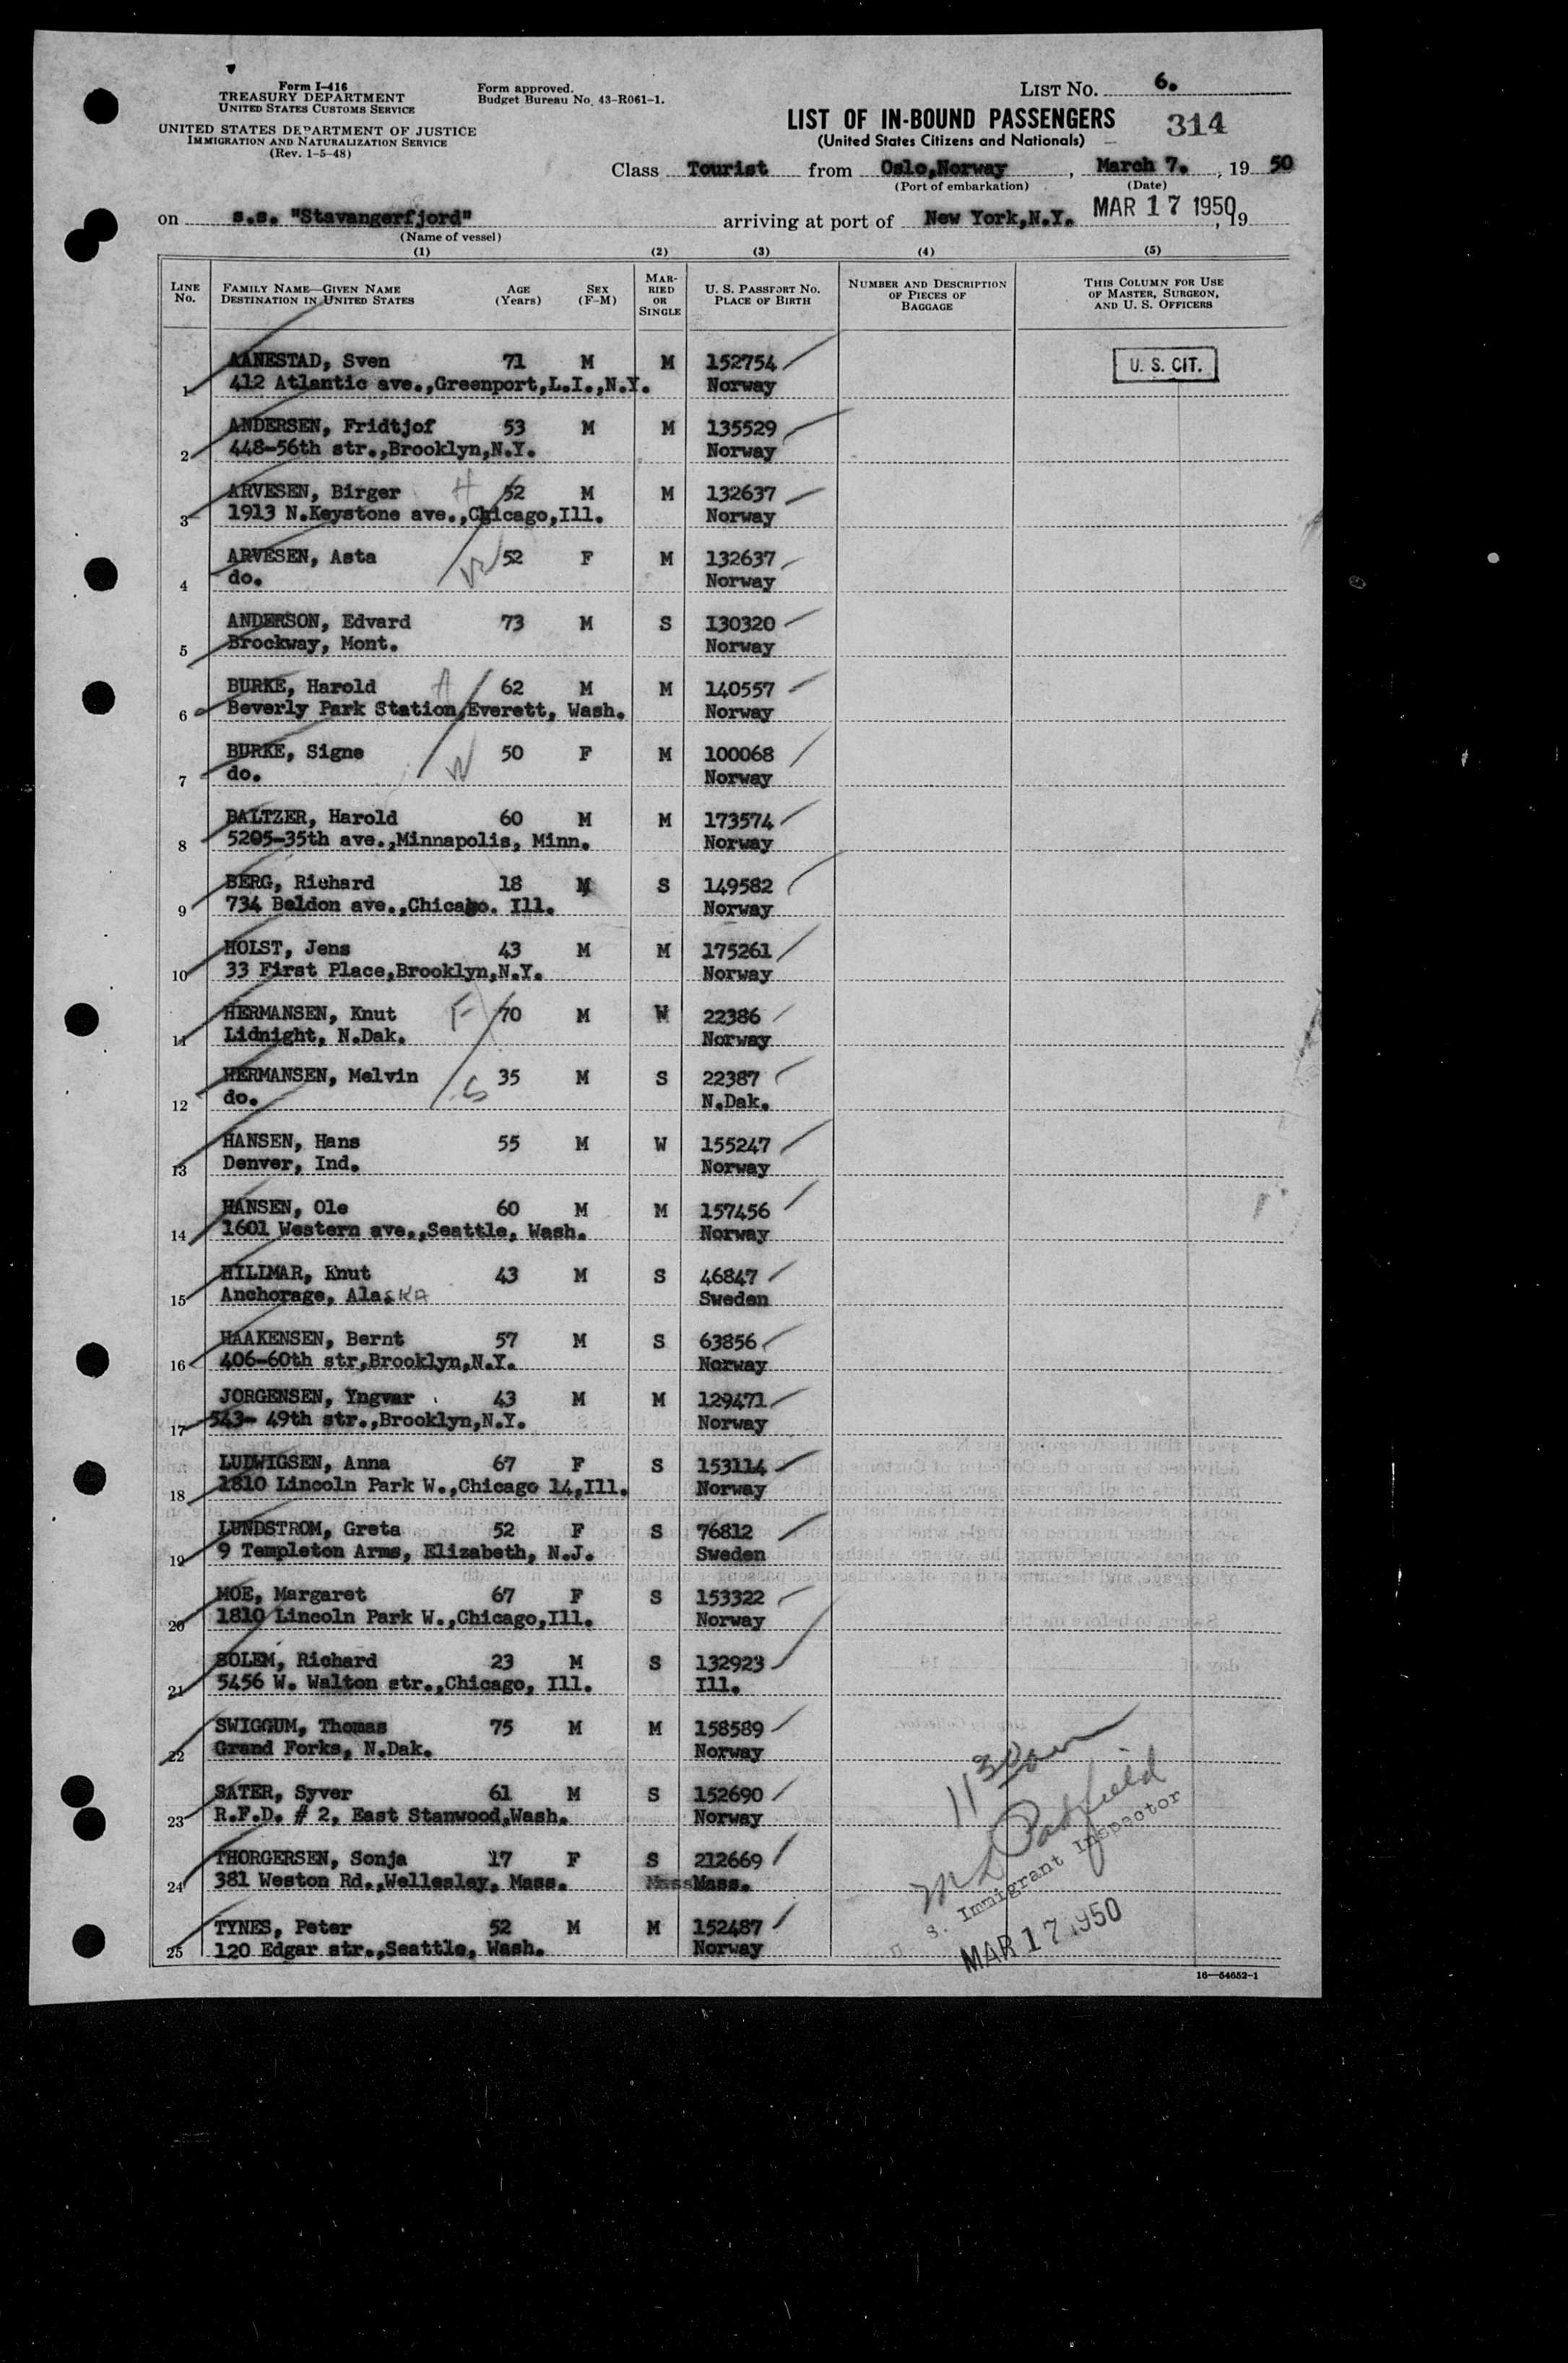 Form I-416
TREASURY DEPARTMENT
UNITED STATES CUSTOMS SERVICE
UNITED STATES DEPARTMENT OF JUSTICE
IMMIGRATION AND NATURALIZATION SERVICE
(Rev. 1-5-48)
Form approved.
Budget Bureau No. 43-R061-1.
LIST No. 6.
LIST OF IN-BOUND PASSENGERS
(United States Citizens and Nationals)
314
Class Tourist from Oslo,Norway , March 7. , 19 50
(Port of embarkation) (Date)
on s.s. "Stavangerfjord" arriving at port of New York,N.Y. MAR 17 1950 , 19
(Name of vessel)
(1) (2) (3) (4) (5)
LINE No. FAMILY NAME—GIVEN NAME DESTINATION IN UNITED STATES AGE (Years) SEX (F-M) MARRIED OR SINGLE U. S. PASSPORT No. PLACE OF BIRTH NUMBER AND DESCRIPTION OF PIECES OF BAGGAGE THIS COLUMN FOR USE OF MASTER, SURGEON, AND U. S. OFFICERS
AANESTAD, Sven 71 M M 152754 U. S. CIT.
1 412 Atlantic ave.,Greenport,L.I.,N.Y. Norway
ANDERSEN, Fridtjof 53 M M 135529
2 448-56th str.,Brooklyn,N.Y. Norway
ARVESEN, Birger H 52 M M 132637
3 1913 N.Keystone ave.,Chicago,Ill. Norway
ARVESEN, Asta W 52 F M 132637
4 do. Norway
ANDERSON, Edvard 73 M S I30320
5 Brockway, Mont. Norway
BURKE, Harold H 62 M M 140557
6 Beverly Park Station,Everett, Wash. Norway
BURKE, Signe W 50 F M 100068
7 do. Norway
BALTZER, Harold 60 M M 173574
8 5205-35th ave.,Minnapolis, Minn. Norway
BERG, Richard 18 M S 149582
9 734 Beldon ave.,Chicago. Ill. Norway
HOLST, Jens 43 M M 175261
10 33 First Place,Brooklyn,N.Y. Norway
HERMANSEN, Knut F 70 M W 22386
11 Lidnight, N.Dak. Norway
HERMANSEN, Melvin S 35 M S 22387
12 do. N.Dak.
HANSEN, Hans 55 M W 155247
13 Denver, Ind. Norway
HANSEN, Ole 60 M M 157456
14 1601 Western ave.,Seattle, Wash. Norway
HILLMAR, Knut 43 M S 46847
15 Anchorage, Alaska Sweden
HAAKENSEN, Bernt 57 M S 63856
16 406-60th str,Brooklyn,N.Y. Norway
JORGENSEN, Yngvar 43 M M 129471
17 543- 49th str.,Brooklyn,N.Y. Norway
LUDWIGSEN, Anna 67 F S 153114
18 1810 Lincoln Park W.,Chicago 14,Ill. Norway
LUNDSTROM, Greta 52 F S 76812
19 9 Templeton Arms, Elizabeth, N.J. Sweden
MOE, Margaret 67 F S 153322
20 1810 Lincoln Park W.,Chicago,Ill. Norway
SOLEM, Richard 23 M S 132923
21 5456 W. Walton str.,Chicago, Ill. Ill.
SWIGGUM, Thomas 75 M M 158589
22 Grand Forks, N.Dak. Norway
SATER, Syver 61 M S 152690
23 R.F.D. # 2, East Stanwood,Wash. Norway
THORGERSEN, Sonja 17 F S 212669
24 381 Weston Rd.,Wellesley, Mass. Mass Mass.
TYNES, Peter 52 M M 152487
25 120 Edgar str.,Seattle, Wash. Norway
11 30 am
S. Immigrant Inspector
MAR 17 1950
16—54652-1